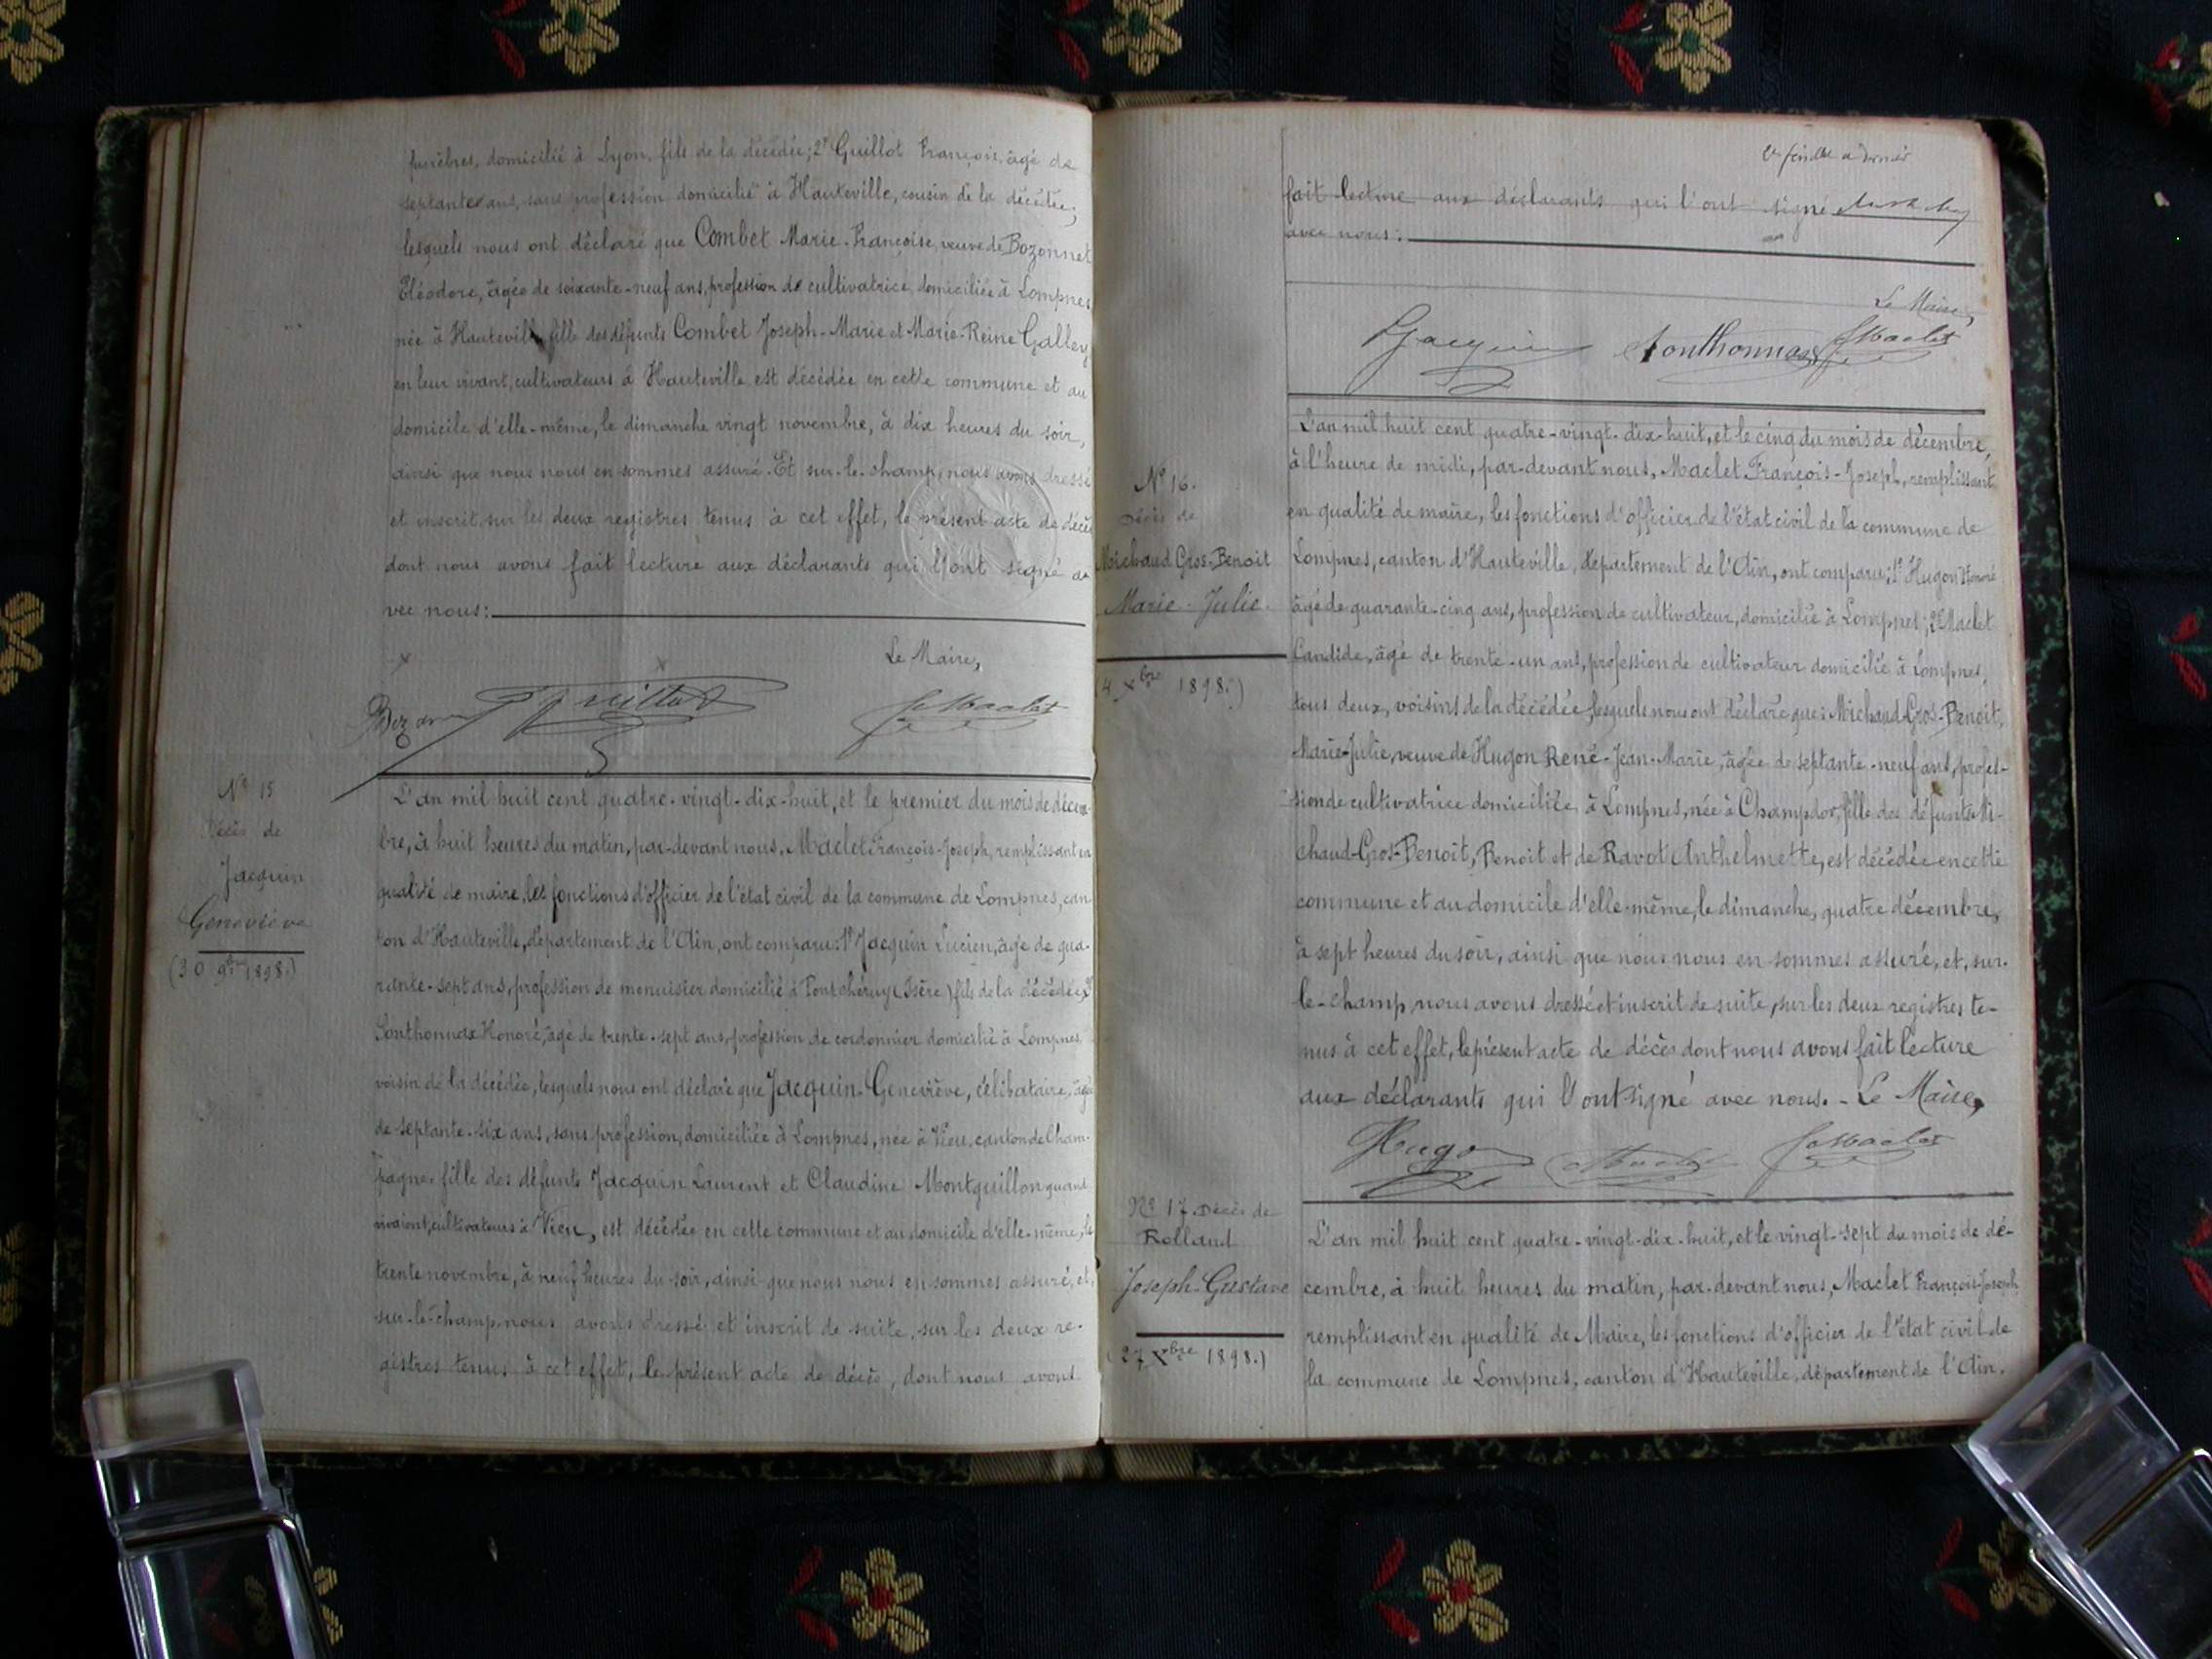 funèbres, domicilié à Lyon, fils de la décédée; 2º Guillot François, âgé de
septante ans, sans profession domicilié à Hauteville, cousin de la décédée,
lesquels nous ont déclaré que Combet Marie-Françoise, veuve de Bozonnet
Eléodore, âgée de soixante-neuf ans, profession de cultivatrice, domiciliée à Lompnes
née à Hauteville, fille des défunts Combet Joseph-Marie et Marie-Reine Galley
en leur vivant, cultivateurs à Hauteville est décédée en cette commune et au
domicile d'elle-même, le dimanche vingt novembre, à dix heures du soir,
ainsi que nous nous en sommes assuré. Et sur-le-champ, nous avons dressé
et inscrit, sur les deux registres tenus à cet effet, le présent acte de décès
dont nous avons fait lecture aux déclarants qui l'ont signé a-
vec nous:
Le Maire,
Guillot
F. Maclet
Nº 15
Décès de
Jacquin
Geneviève
(30 9bre 1898.)
L'an mil huit cent quatre-vingt-dix-huit, et le premier du mois de décem-
bre, à huit heures du matin, par-devant nous, Maclet François-Joseph, remplissant en
qualité de maire, les fonctions d'officier de l'état civil de la commune de Lompnes, can-
ton d'Hauteville, département de l'Ain, ont comparu: 1º Jacquin Lucien, âgé de qua-
rante-sept ans, profession de menuisier domicilié à Pontchéruy (Isère) fils de la décédée; 2º
Sonthonnax Honoré, âgé de trente-sept ans, profession de cordonnier domicilié à Lompnes
voisin de la décédée, lesquels nous ont déclaré que Jacquin Geneviève, célibataire, âgée
de septante-six ans, sans profession, domiciliée à Lompnes, née à Vieu, canton de Cham-
pagne, fille des défunts Jacquin Laurent et Claudine Montguillon quand
vivaient, cultivateurs à Vieu, est décédée en cette commune et au domicile d'elle-même, le
trente novembre, à neuf heures du soir, ainsi que nous nous en sommes assuré, et,
sur-le-champ, nous avons dressé et inscrit de suite, sur les deux re-
gistres tenus à cet effet, le présent acte de décès, dont nous avons
feuille a dernier
fait lecture aux déclarants qui l'ont signé
avec nous:
Le Maire,
Jacquin Sonthonnax F. Maclet
Nº 16.
Décès de
Michaud-Gros-Benoit
Marie-Julie.
(4 Xbre 1898.)
L'an mil huit cent quatre-vingt-dix-huit, et le cinq du mois de décembre,
à l'heure de midi, par-devant nous, Maclet François-Joseph, remplissant
en qualité de maire, les fonctions d'officier de l'état civil de la commune de
Lompnes, canton d'Hauteville, département de l'Ain, ont comparu: 1º Hugon Honoré
âgé de quarante-cinq ans, profession de cultivateur, domicilié à Lompnes; 2º Maclet
Candide, âgé de trente-un ans, profession de cultivateur domicilié à Lompnes,
tous deux, voisins de la décédée, lesquels nous ont déclaré que: Michaud-Gros-Benoit,
Marie-Julie, veuve de Hugon René-Jean-Marie, âgée de septante-neuf ans, profes-
sion de cultivatrice domiciliée à Lompnes, née à Champdor, fille des défunts Mi-
chaud-Gros-Benoit, Benoit et de Ravot Anthelmette, est décédée en cette
commune et au domicile d'elle-même, le dimanche, quatre décembre,
à sept heures du soir, ainsi que nous nous en sommes assuré, et, sur-
le-champ, nous avons dressé et inscrit de suite, sur les deux registres te-
nus à cet effet, le présent acte de décès dont nous avons fait lecture
aux déclarants qui l'ont signé avec nous. - Le Maire,
Hugon Maclet F. Maclet
Nº 17. Décès de
Rolland
Joseph-Gustave
(27 Xbre 1898.)
L'an mil huit cent quatre-vingt-dix-huit, et le vingt-sept du mois de dé-
cembre, à huit heures du matin, par-devant nous, Maclet François-Joseph
remplissant en qualité de Maire, les fonctions d'officier de l'état civil de
la commune de Lompnes, canton d'Hauteville, département de l'Ain,